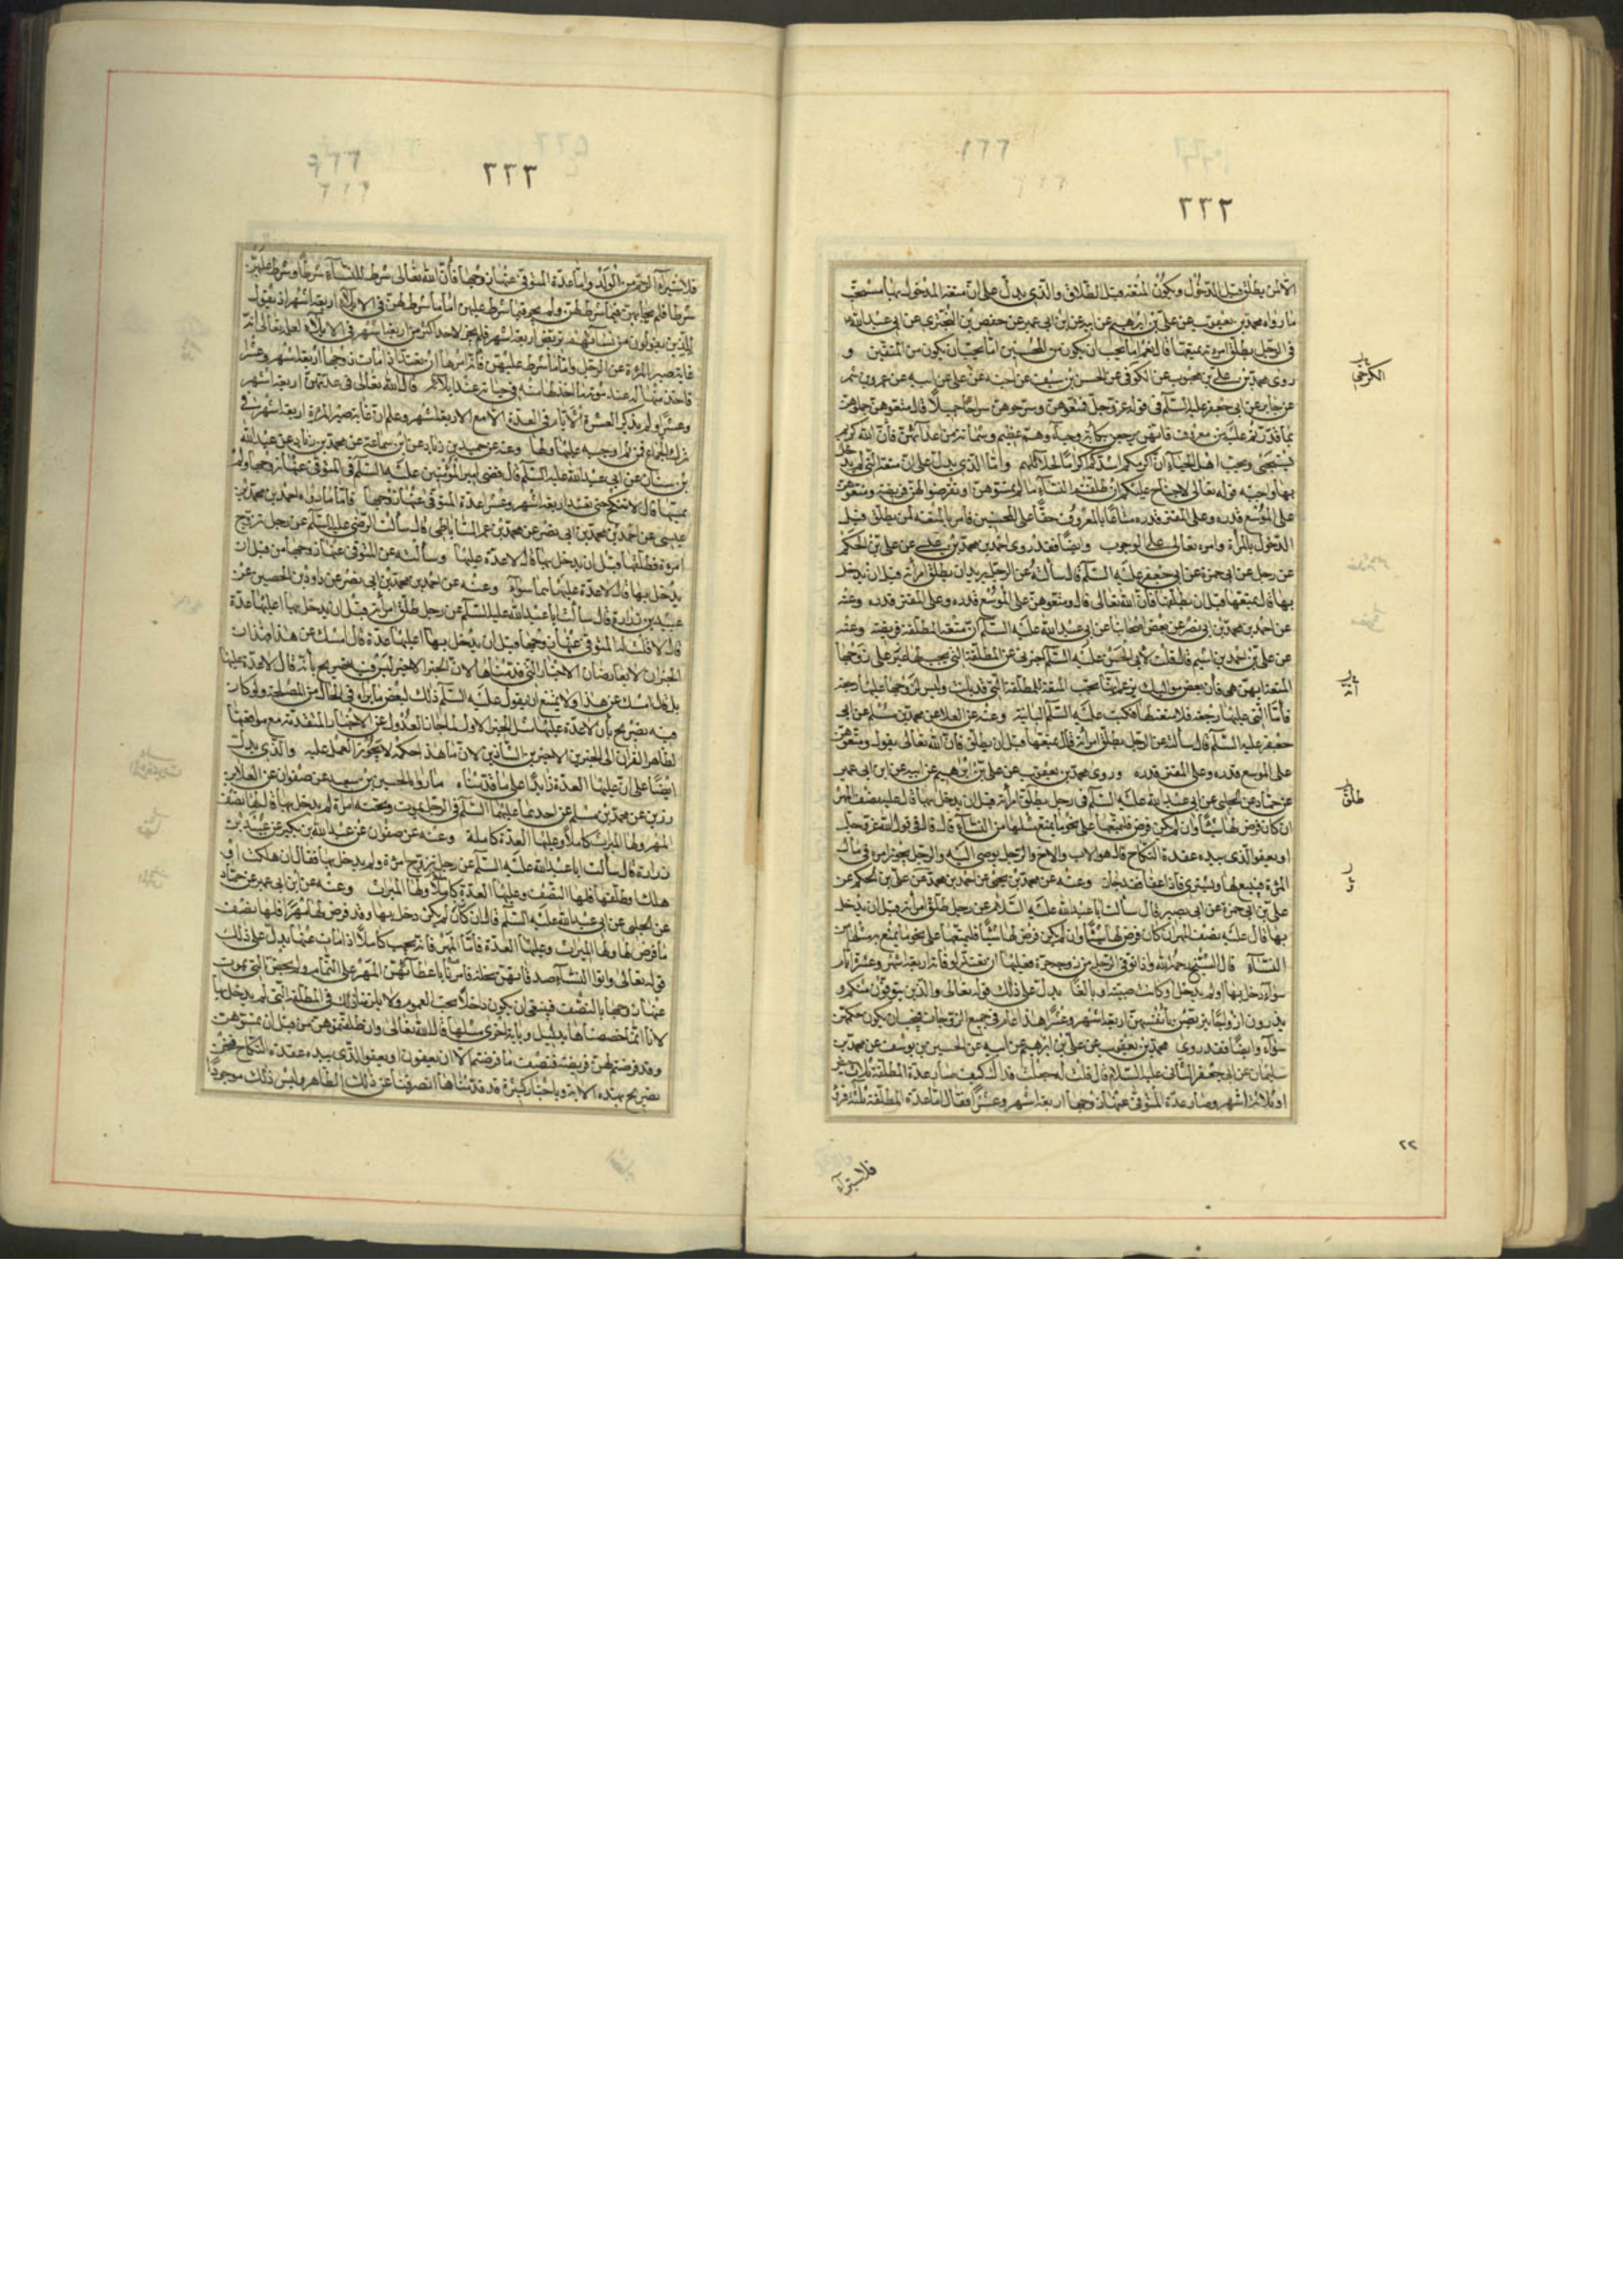 ٣٣٢
الا لمن يطلق قبل الدخول ويكون المتعة قبل الطلاق والذي يدل على ان متعة المدخول بها مستحب
ما رواه محمد بن يعقوب عن علي بن ابرهيم عن ابيه عن ابن ابي عمير عن حفص بن البختري عن ابي عبد الله
في الرجل يطلق امرءته يمتعها قال نعم اما تحب ان يكون من المحسنين اما تحب ان يكون من المتقين و
روى محمد بن علي بن محبوب عن الكوفي عن الحسن بن سيف عن اخيه عن علي عن ابيه عن عمرو بن شمر
عن جابر عن ابي جعفر عليه السلم في قوله عز وجل فمتعوهن وسرحوهن سراحا جميلا قال متعوهن جملوهن
بما قدرتم عليه من معروف فانهن يرجعن بكأبة وحياء وهم عظيم وشماتة من اعدائهن فان الله كريم
يستحيي ويحب اهل الحياء ان اكرمكم اشدكم اكراما لحلائلهم واما الذي يدل على ان متعة التي لم يدخل
بها واجبة قوله تعالى لا جناح عليكم ان طلقتم النسآء ما لم تمسوهن او تفرضوا لهن فريضة ومتعوهن
على الموسع قدره وعلى المقتر قدره متاعا بالمعروف حقا على المحسنين فامر بالمتعة لمن يطلق قبل
الدخول بالمرأة وامره تعالى على الوجوب وايضا فقد روى احمد بن محمد بن عيسى عن علي بن الحكم
عن رجل عن ابي حمزة عن ابي جعفر عليه السلم قال سألته عن الرجل يريد ان يطلق امرأته قبل ان يدخل
بها قال يمتعها قبل ان يطلقها فان الله تعالى قال ومتعوهن على الموسع قدره وعلى المقتر قدره وعنه
عن احمد بن محمد بن ابي نصر عن بعض اصحابنا عن ابي عبد الله عليه السلم ان متعة المطلقة فريضة وعنه
عن علي بن احمد بن اشيم قال قلت لأبي الحسن عليه السلم اخبرني عن المطلقة التي يجب لها على زوجها
المتعة ايهن هي فان بعض مواليك يزعم انها تجب المتعة للمطلقة التي قد بانت وليس لزوجها عليها رجعة
فأما التي عليها رجعة فلا متعة لها فكتب عليه السلم البائنة وعنه عن العلا عن محمد بن مسلم عن ابي
جعفر عليه السلم قال سألته عن الرجل يطلق امرأته قال يمتعها قبل ان يطلق فان الله تعالى يقول ومتعوهن
على الموسع قدره وعلى المقتر قدره وروى محمد بن يعقوب عن علي بن ابرهيم عن ابيه عن ابن ابي عمير
عن حماد عن الحلبي عن ابي عبد الله عليه السلم في رجل يطلق امرأته قبل ان يدخل بها قال عليه نصف المهر
ان كان فرض لها شيئا وان لم يكن فرض فليمتعها على نحو ما يمتع مثلها من النساء قال قال في قول الله عز وجل
او يعفو الذي بيده عقدة النكاح قال هو الاب والاخ والرجل يوصي اليه والرجل يجوز امره في مال
المرءة فيبيع لها ويشتري فاذا عفا فقد جاز وعنه عن محمد بن يحيى عن احمد بن محمد عن علي بن الحكم عن
علي بن ابي حمزة عن ابي بصير قال سألت ابا عبد الله عليه السلام عن رجل طلق امرأته قبل ان يدخل
بها قال عليه نصف المهر ان كان فرض لها شيئا وان لم يكن فرض لها شيئا فليمتعها على نحو ما يمتع به مثلها من
النساء قال الشيخ رحمه الله واذا توفي الرجل عن زوجة حرة فعليها ان تعتد لوفاته اربعة اشهر وعشرة ايام
سواء دخل بها او لم يدخل وكانت صبية او بالغا يدل على ذلك قوله تعالى والذين يتوفون منكم و
يذرون ازواجا يتربصن بأنفسهن اربعة اشهر وعشرا هذا عام في جميع الزوجات فيجب ان يكون حكمهن
سواء وايضا فقد روى محمد بن يعقوب عن علي بن ابرهيم عن ابيه عن الحسين بن يوسف عن محمد بن
سليمان عن ابي جعفر الثاني عليه السلام قال قلت له جعلت فداك كيف صار عدة المطلقة ثلاث حيض
او ثلاثة اشهر وصار عدة المتوفى عنها زوجها اربعة اشهر وعشرا فقال اما عدة المطلقة ثلثة قروء
الكرخي
طلق
٢٢
فلاستبراء
٣٣٣
فلاستبراء الرحم من الولد واما عدة المتوفى عنها زوجها فان الله تعالى شرط للنساء شرطا وشرط عليهن
شرطا فلم يحابهن فيما شرط لهن ولم يجر فيما شرط عليهن اما ما شرط لهن في الايلاء اربعة اشهر اذ يقول
للذين يؤلون من نسائهم تربص اربعة اشهر فلم يجز لاحد اكثر من اربعة اشهر في الايلاء لعلمه تعالى انه
غاية صبر المرءة عن الرجل واما ما شرط عليهن فانه امرها ان تعتد اذا مات زوجها اربعة اشهر وعشرا
فاخذ منها له عند موته ما اخذ لها منه في حياته عند ايلائه قال الله تعالى في عدتهن اربعة اشهر
وعشرا ولم يذكر العشرة الايام في العدة الا مع الاربعة اشهر وعلم ان غاية صبر المرءة اربعة اشهر في
ترك الجماع فمن ثم اوجبه عليها ولها وعنه عن حميد بن زياد عن ابن سماعة عن محمد بن زياد عن عبد الله
بن سنان عن ابي عبد الله عليه السلم قال قضى امير المؤمنين عليه السلم في المتوفى عنها زوجها ولم
يمسها قال لا تنكح حتى تعتد اربعة اشهر وعشرا عدة المتوفى عنها زوجها فاما ما رواه احمد بن محمد بن
عيسى عن احمد بن محمد بن ابي نصر عن محمد بن عمر الساباطي قال سألت الرضي عليه السلم عن رجل تزوج
امرءة فطلقها قبل ان يدخل بها قال لا عدة عليها وسألته عن المتوفى عنها زوجها من قبل ان
يدخل بها قال لا عدة عليها هما سواء وعنه عن احمد بن محمد بن ابي نصر عن داود بن الحصين عن
عبيد بن زرارة قال سألت ابا عبد الله عليه السلم عن رجل طلق امرأته قبل ان يدخل بها اعليها عدة
قال لا قلت له المتوفى عنها زوجها قبل ان يدخل بها اعليها عدة قال امسك عن هذا فهذان
الخبران لا يعارضان الاخبار التي قدمناها لان الخبر الاخير ليس فيه تصريح بأنه قال لا عدة عليها
بل قال امسك عن هذا ولا يمتنع ان يقول عليه السلم ذلك لبعض ما يراه في الحال من المصلحة ولو كان
فيه تصريح بأن لا عدة عليها مثل الخبر الاول لما جاز العدول عن الاخبار المتقدمة مع موافقتها
لظاهر القران الى الخبرين الاخيرين الشاذين لان ما هذا حكمه لا يجوز العمل عليه والذي يدل
ايضا على ان عليها العدة زايدا على ما قدمناه ما رواه الحسين بن سعيد عن صفوان عن العلا بن
رزين عن محمد بن مسلم عن احدهما عليهما السلم في الرجل يموت وتحته امرأة لم يدخل بها قال لها نصف
المهر ولها الميراث كاملا وعليها العدة كاملة وعنه عن صفوان عن عبد الله بن بكير عن عبيد بن
زرارة قال سألت ابا عبد الله عليه السلم عن رجل تزوج امرءة ولم يدخل بها فقال ان هلكت او
هلك او طلقها فلها النصف وعليها العدة كاملا ولها الميراث وعنه عن ابن ابي عمير عن حماد
عن الحلبي عن ابي عبد الله عليه السلم قال ان كان لم يكن دخل بها وقد فرض لها مهرا فلها نصف
ما فرض لها ولها الميراث وعليها العدة فاما المهر فانه يجب كاملا اذا مات عنها يدل على ذلك
قوله تعالى واتوا النساء صدقاتهن نحلة فأمرنا باعطائهن المهر على التمام ولم يخص التي يموت
عنها زوجها بالنصف فينبغي ان يكون داخلا تحت العموم ولا يلزمنا ذلك في المطلقة التي لم يدخل بها
لانا انما خصصناها بدليل وباية اخرى مثلها قال الله تعالى وان طلقتموهن من قبل ان تمسوهن
وقد فرضتم لهن فريضة فنصف ما فرضتم الا ان يعفون او يعفو الذي بيده عقدة النكاح فخص
بصريح هذه الاية وباخبار كثيرة قد قدمناها انصرفنا عن ذلك الظاهر وليس ذلك موجودا